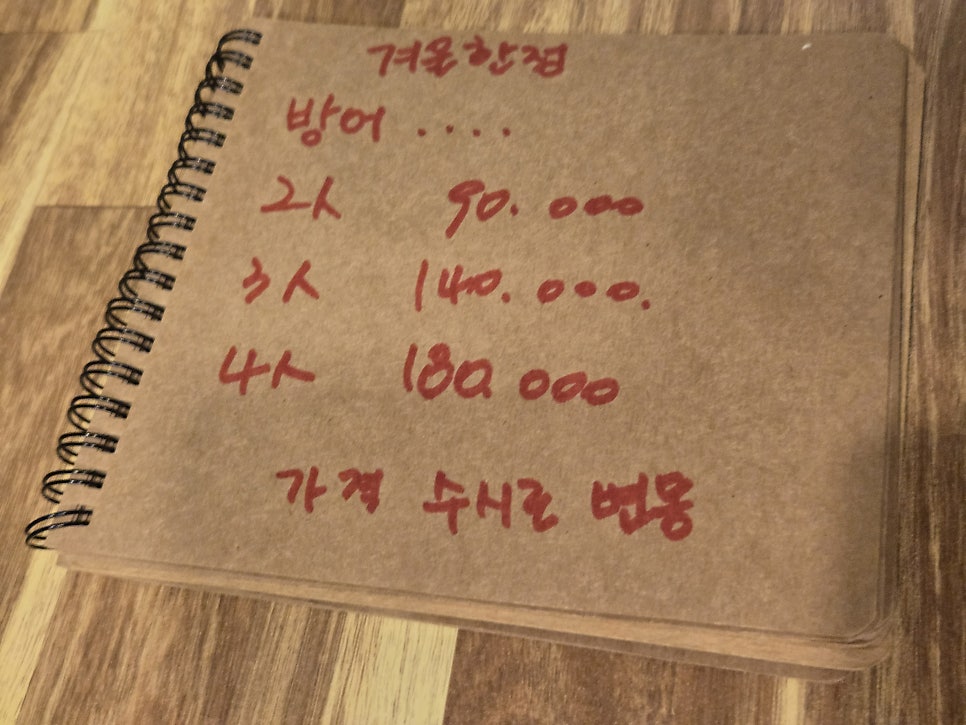 겨울한정
방어 ....
2人 90.000
3人 140.000.
4人 180.000
가격 수시로 변동